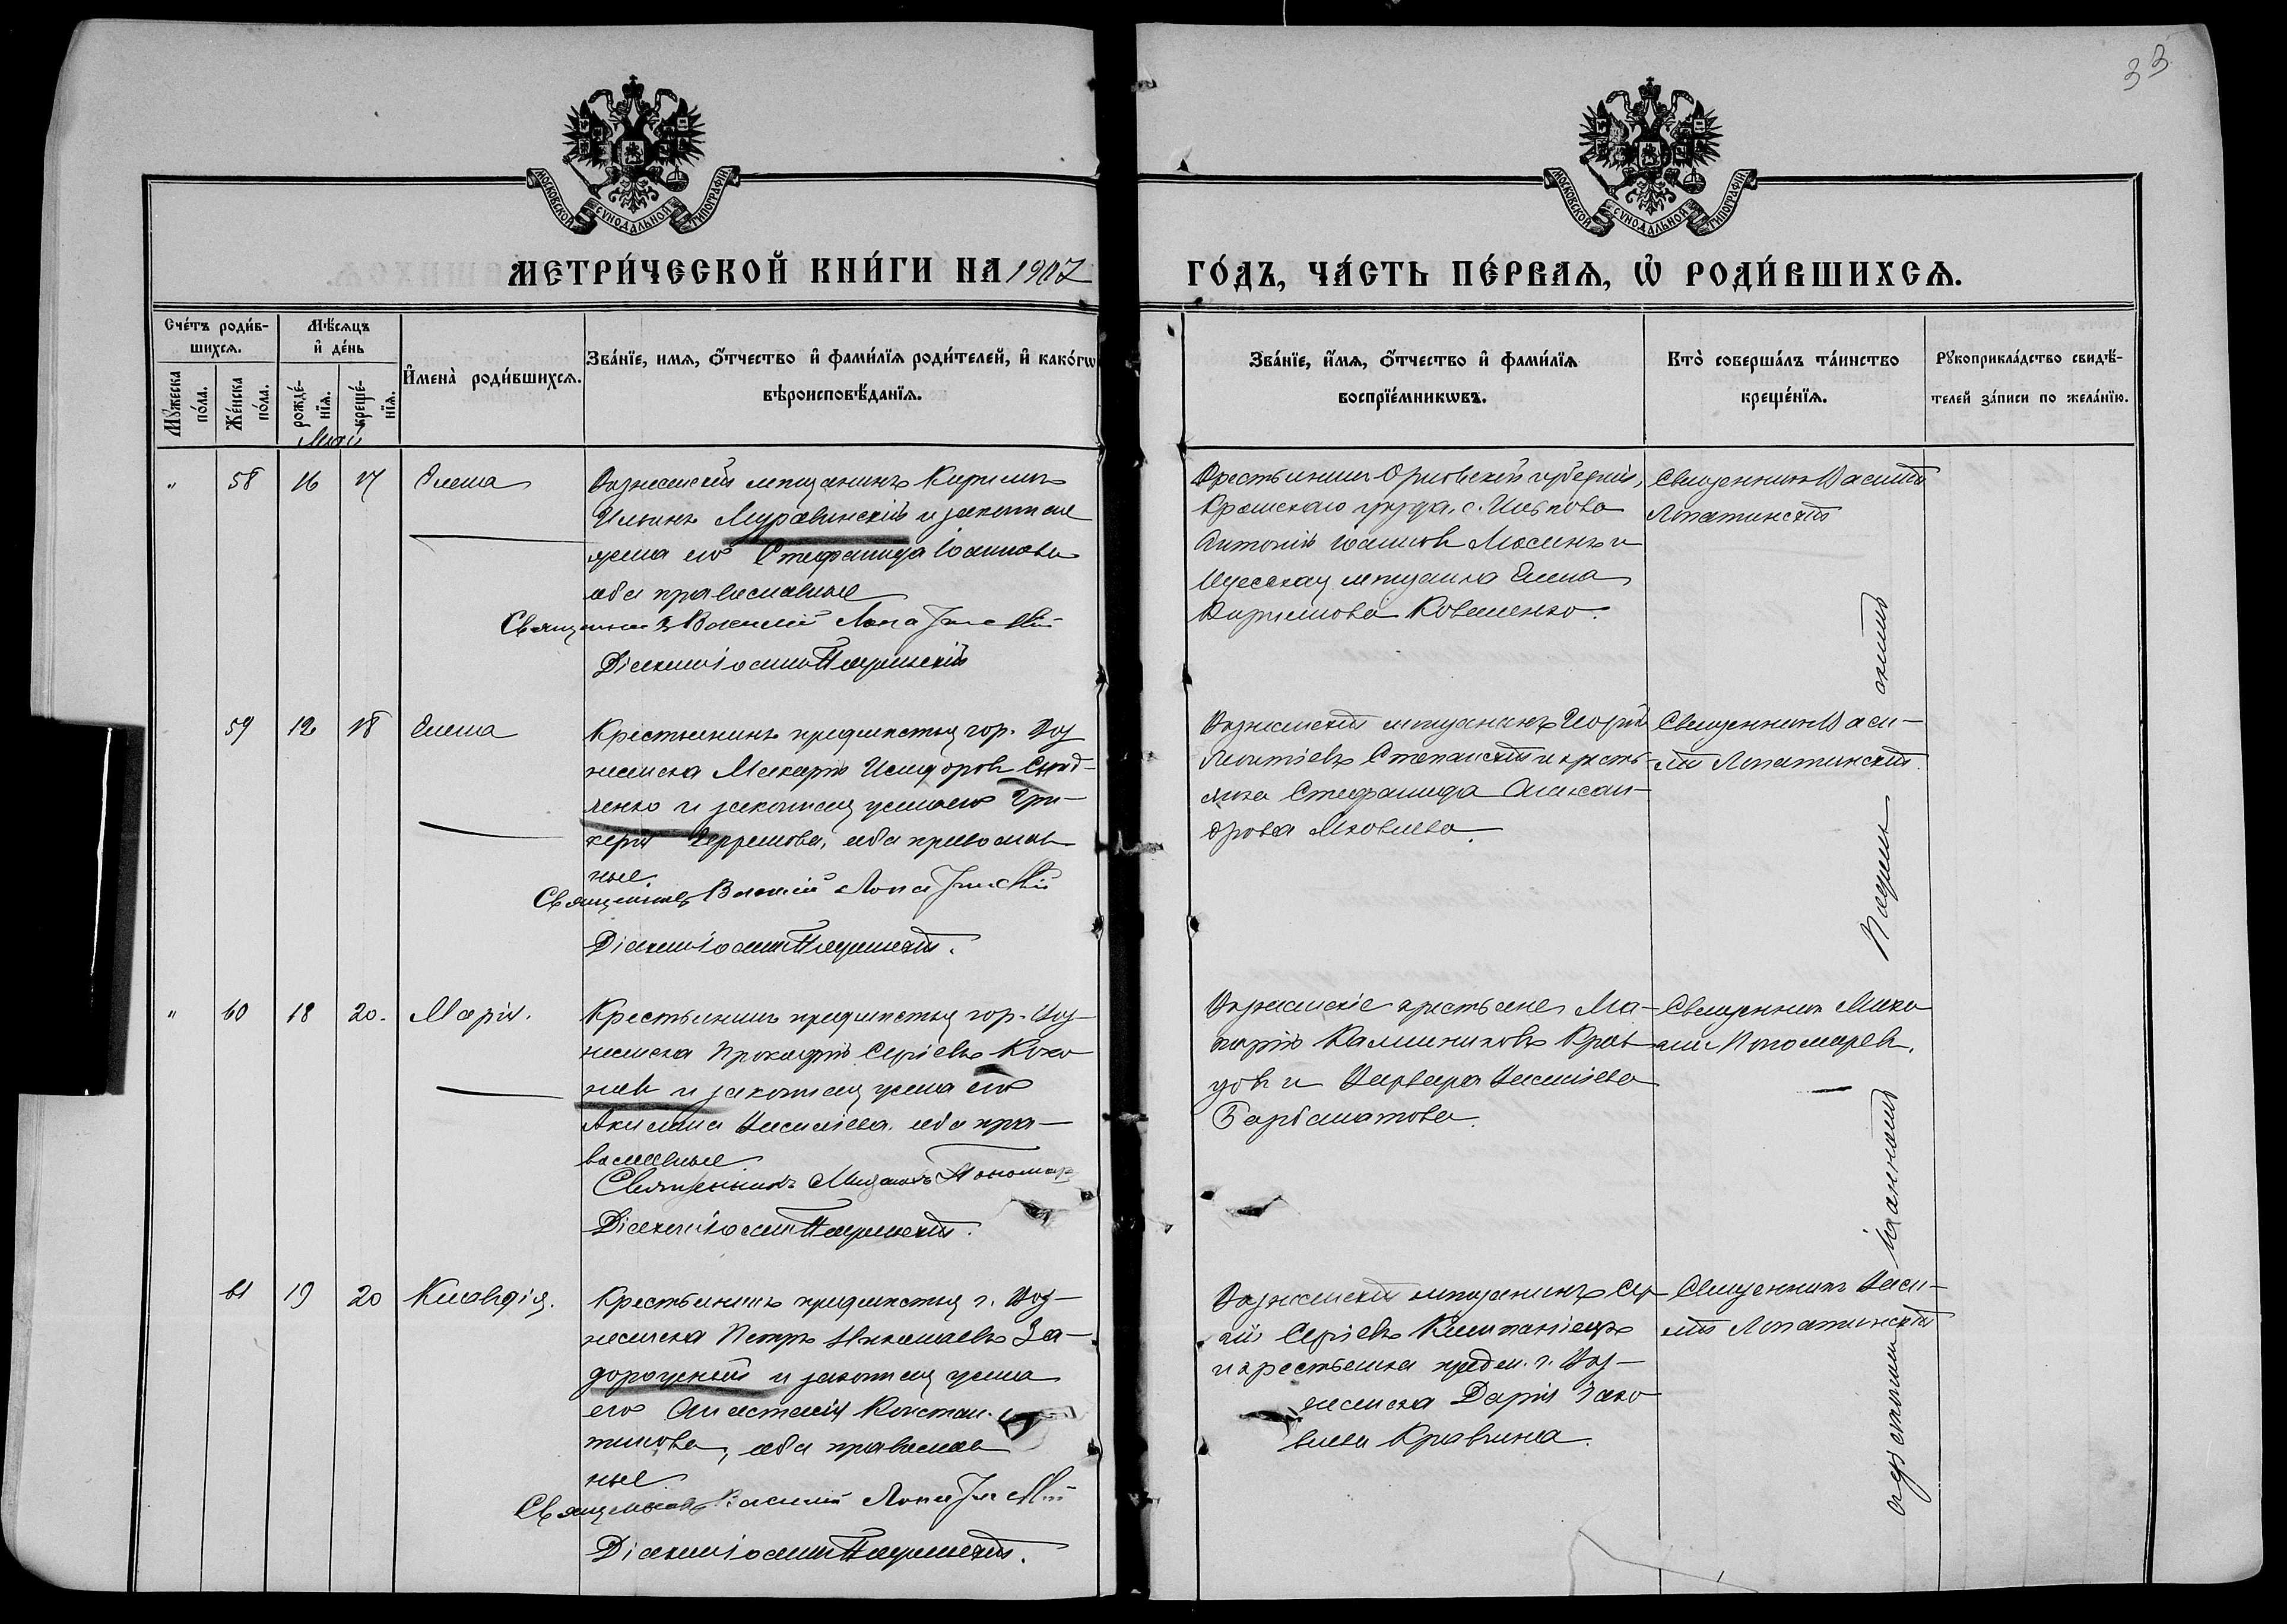 33
МОСКОВСКОЙ СѴНОДАЛЬНОЙ ТИПОГРАФІИ
МОСКОВСКОЙ СѴНОДАЛЬНОЙ ТИПОГРАФІИ
МЕТРИ́ЧЕСКОЙ КНИ́ГИ НА 1907
ГО́ДЪ, ЧА́СТЬ ПЕ́РВАѦ, Ѡ҆ РОДИ́ВШИХСѦ.
Сче́тъ роди́в-
шихсѧ.
Мꙋжеска
по́ла.
Же́нска
по́ла.
Мѣ́сѧцъ
и҆ де́нь
рожде́-
нїѧ.
креще́-
нїѧ.
И҆мена̀ роди́вшихсѧ.
Зва́нїе, имѧ, ѻ҆́тчество и҆ фами́лїѧ роди́телей, и҆ како́гѡ
вѣроисповѣ́данїѧ.
Зва́нїе, и҆́мѧ, ѻ҆́тчество и҆ фами́лїѧ
воспрїе́мникѡвъ.
Кто̀ соверша́лъ та́инство
креще́нїѧ.
Рꙋкоприкла́дство свидѣ́-
телей за́писи по жела́нїю.
Май
" 58 16 17 Елена
Вознесенскій мѣщанинъ Кириллъ
Ильинъ Муравинскій и законная
жена его Стефанида Іоаннова
оба православные
Священникъ Василій Лопатинскій
Діаконъ Іоаннъ
Крестьянинъ Орловской губерніи,
Кромскаго уѣзда, с.
Антоній Іоанновъ Мосинъ и
Одесская мѣщанка Елена
Кириллова Коваленко.
Священникъ Василій
Лопатинскій
59 12 18 Елена
Крестьянинъ предмѣстья гор. Воз
несенска Макарій Исидоровъ
ленко и законная жена его Гли-
керія Ефремова, оба православ
ные.
Священникъ Василій Лопатинскій
Діаконъ Іоаннъ
Вознесенскій мѣщанинъ Георгій
Леонтіевъ Степанскій и кресть-
янка Стефанида Алексан-
дрова Яковлева.
Священникъ Васи-
лій Лопатинскій.
" 60 18 20. Марія.
Крестьянинъ предмѣстья гор. Воз-
несенска Прокофій Сергіевъ Коко
невъ и законная жена его
Акилина Васильева. оба пра-
вославные
Священникъ Михаилъ Пономар
Діаконъ Іоаннъ
Вознесенскіе крестьяне Ма-
карій Калинниковъ Крав
цовъ и Варвара Васильева
Барбашатова.
Священникъ Миха
илъ Пономаревъ.
61 19 20 Клавдія.
Крестьянинъ предмѣстья г. Воз-
несенска Петръ Николаевъ За-
дорожный и законная жена
его Анастасія Констан-
тинова, оба православ
ные.
Священникъ Василій Лопатинскій
Діаконъ Іоаннъ
Вознесенскій мѣщанинъ Сер
гій Сергіевъ
и крестьянка предм. г. Воз-
несенска Дарія Іако
влева Кравчина.
Священникъ Васи-
лій Лопатинскій
Іоанномъ